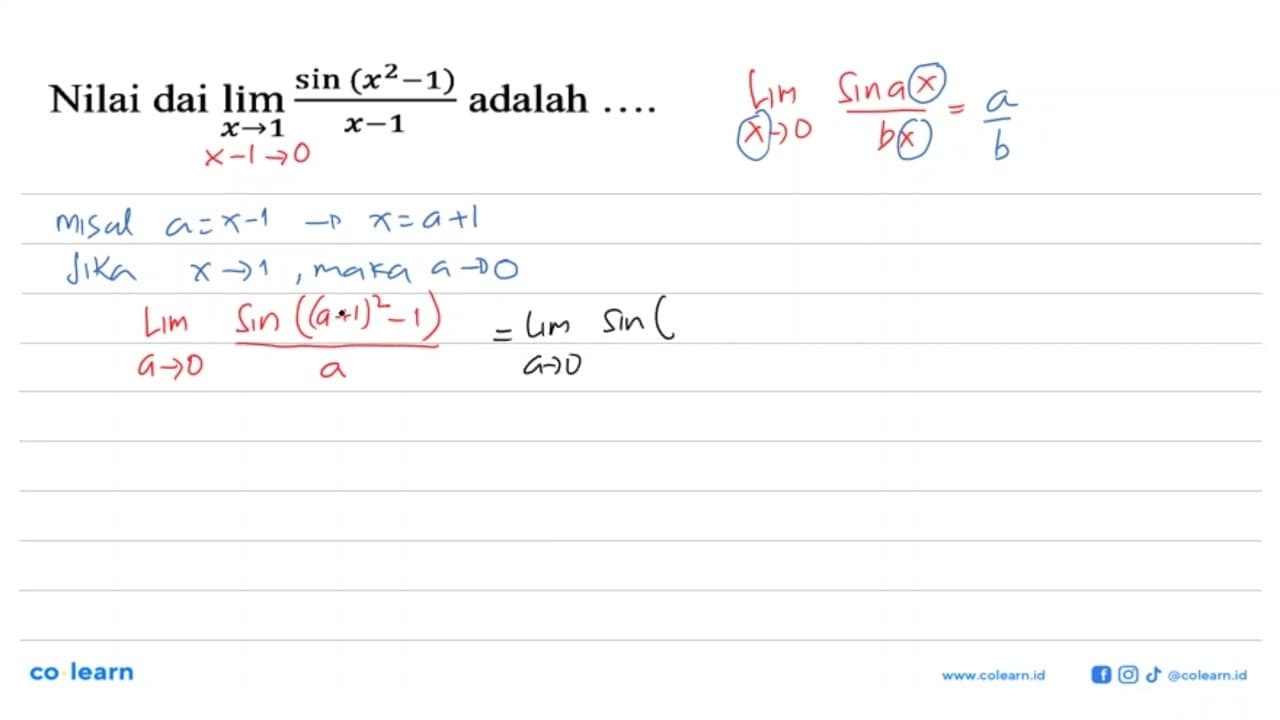 Nilai dai lim x→1 sin (x²−1) / x−1 adalah ….
x-1→0
Lim x→0 Sin ax / bx = a / b
misal a = x-1 → x = a+1
Jika x→1, maka a→0
Lim a→0 Sin((a+1)²-1) / a = Lim a→0 Sin(
co learn
www.colearn.id
@colearn.id